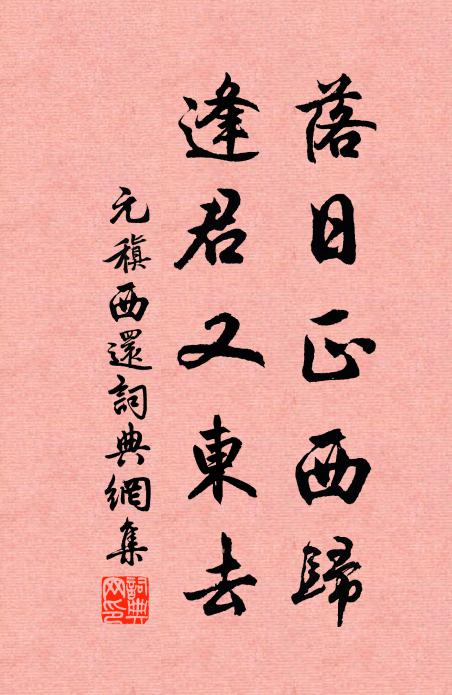 落日正西歸
逢君又東去
元稹西還詞典網集
詞典网印